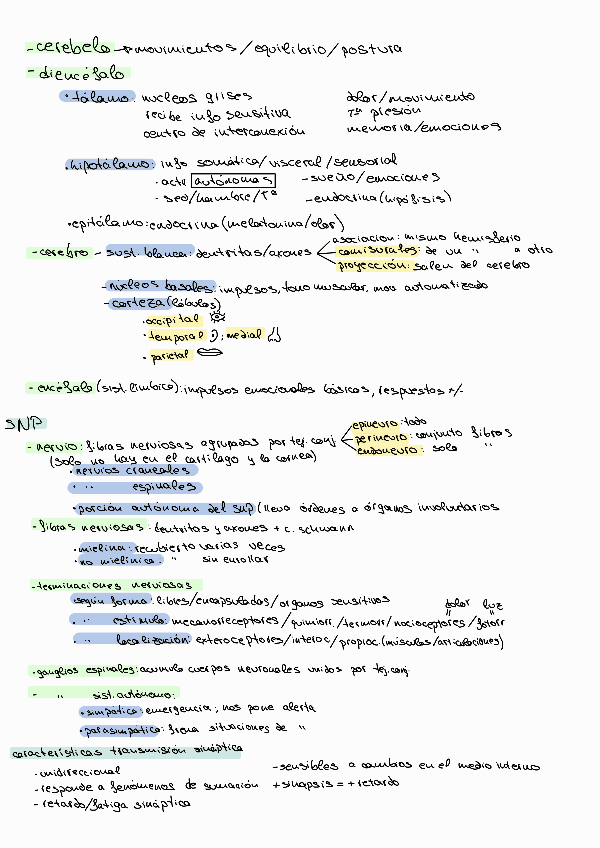 - cerebelo → movimientos / equilibrio / postura
- diencéfalo
· tálamo: nucleos grises dolor/movimiento
recibe info sensitiva Tª presión
centro de interconexión memoria/emociones
· hipotálamo: info somática/visceral/sensorial
· acte autónomas - sueño/emociones
- sed/hambre/Tª - endocrina (hipófisis)
· epitálamo: endocrina (melatonina/olor)
- cerebro - sust. blanca: dentritas/axones
asociacion: mismo hemisferio
comisurales: de un " a otro
proyección: salen del cerebro
- núcleos basales: impulsos, tono muscular, mov automatizado
- corteza (lóbulos)
· occipital
· temporal ; medial
· parietal
- encéfalo (sist. límbico): impulsos emocionales básicos, respuestas +/-
SNP
- nervio: fibras nerviosas agrupadas por tej. conj
epineuro: todo
perineuro: conjunto fibras
endoneuro: solo "
(solo no hay en el cartílago y la cornea)
· nervios craneales
· " espinales
· porción autónoma del snp (lleva órdenes a órganos involuntarios
- fibras nerviosas: dentritas y axones + c. schwann
· mielina: recubierto varias veces
· no mielínica: " sin enrollar
- terminaciones nerviosas
según forma: libres/encapsuladas/organos sensitivos dolor luz
· " estímulo: mecanorreceptores/quimiorr./termorr/nocioceptores/fotorr
· " localización: exteroceptores/interoc/propioc. (músculos/articulaciones)
· ganglios espinales: acumulo cuerpos neuronales unidos por tej. conj.
- " sist. autónomo:
· simpático: emergencia; nos pone alerta
· parasimpático: frena situaciones de "
características transmisión sináptica
· unidireccional - sensibles a cambios en el medio interno
- responde a fenómenos de sumación + sinapsis = + retardo
- retardo/fatiga sináptica